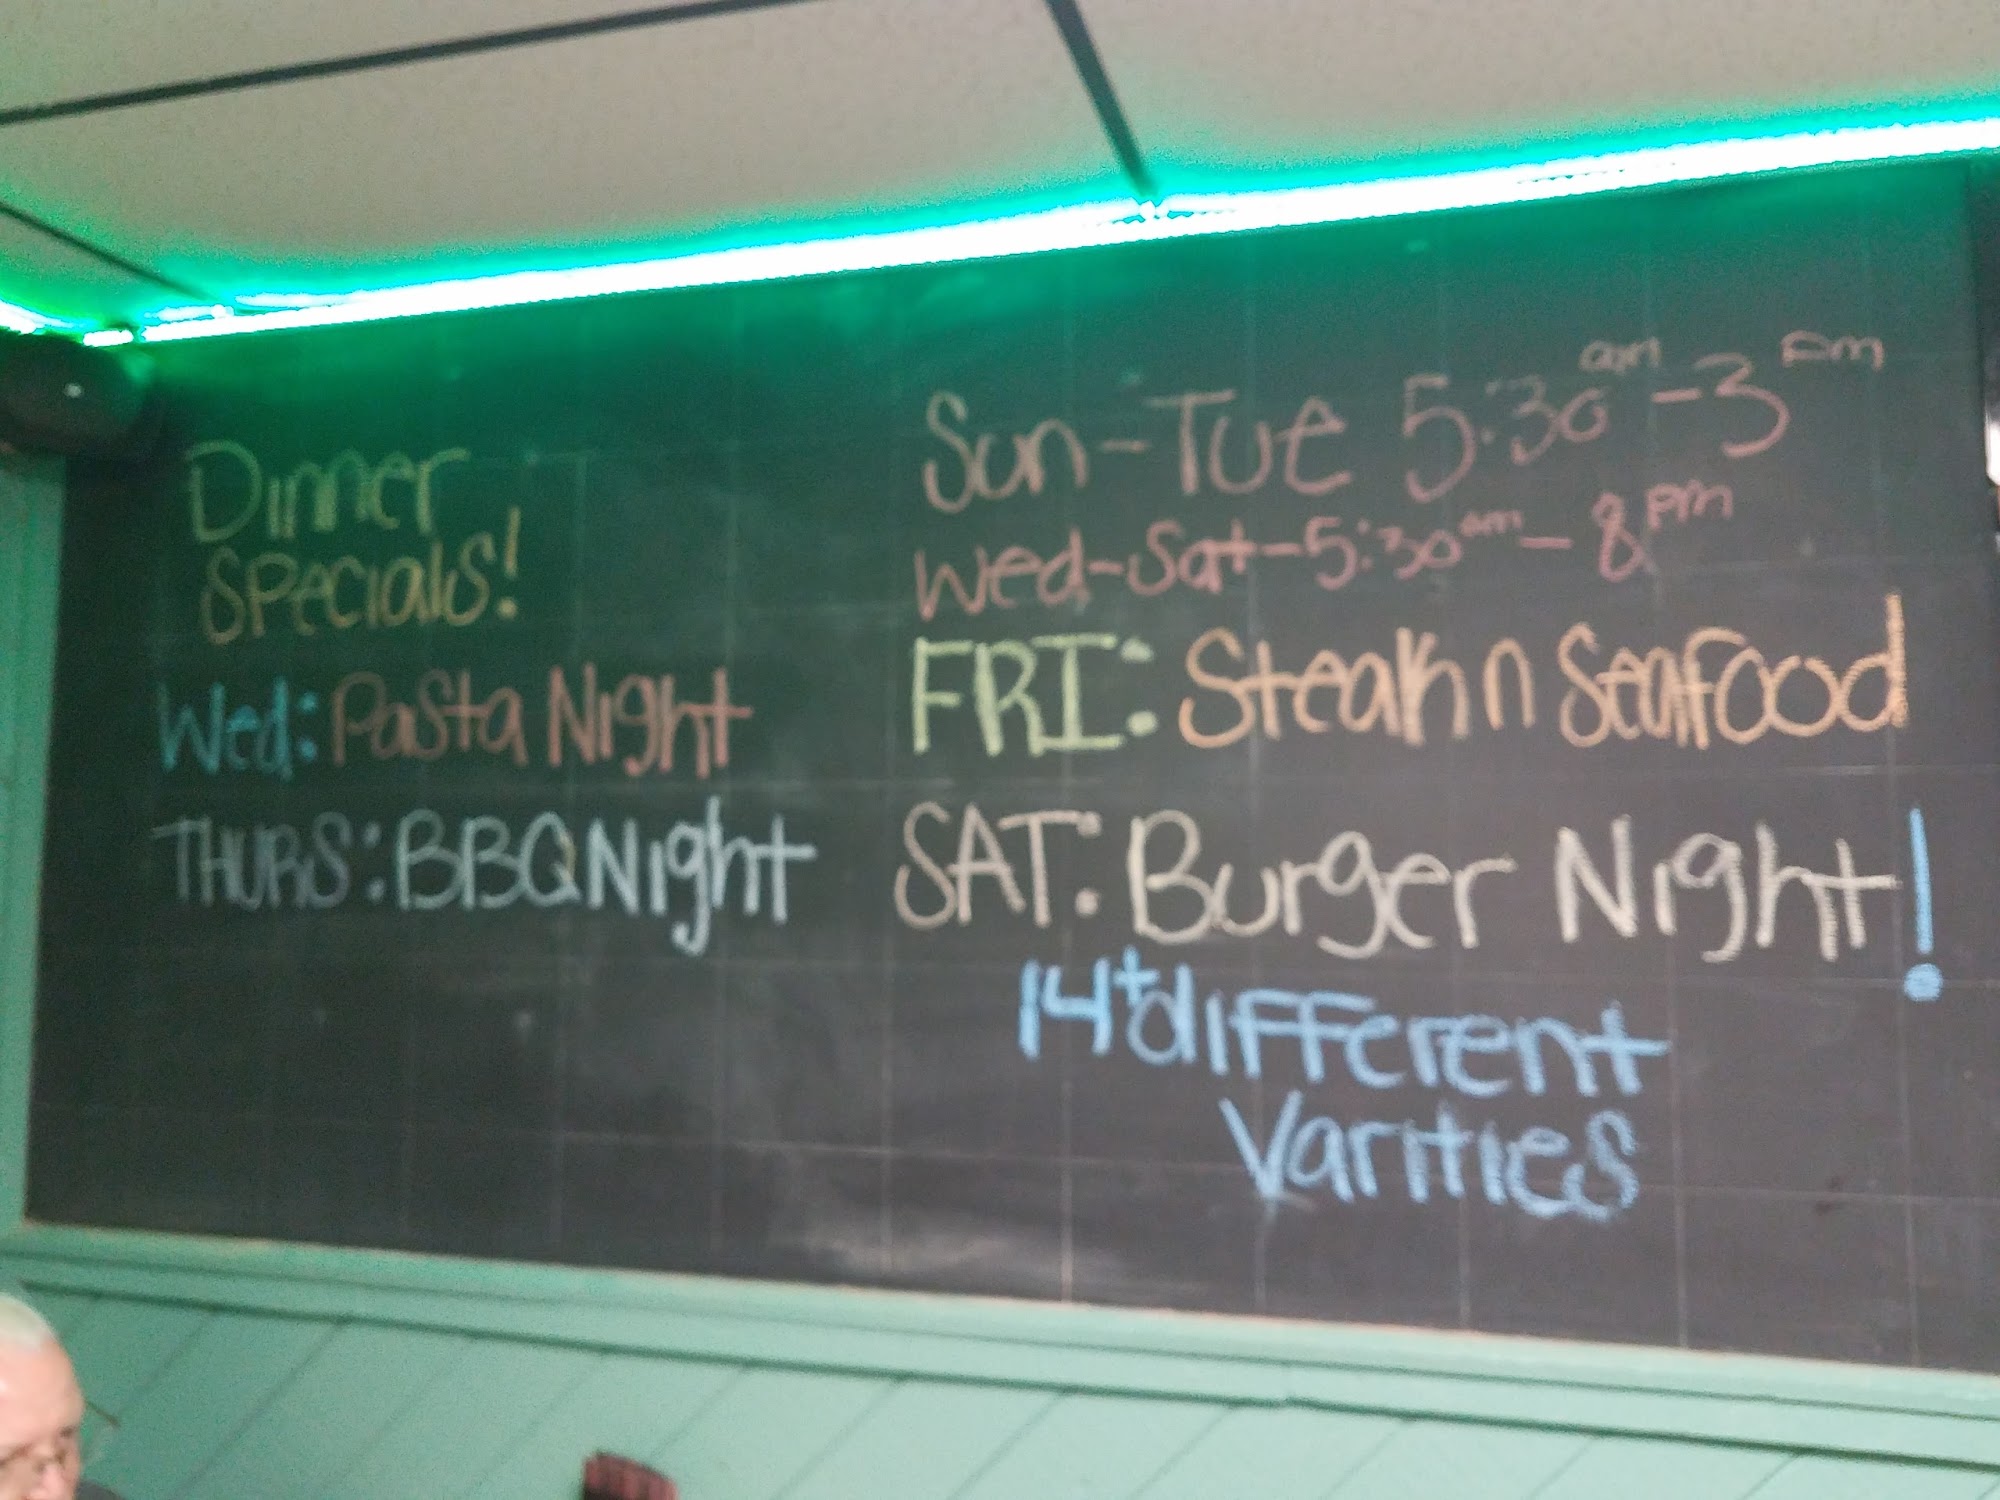 Dinner
Specials!
Wed: Pasta Night
THURS: BBQ Night
Sun-Tue 5:30am-3pm
Wed-Sat-5:30am-8pm
FRI: Steak n Seafood
SAT: Burger Night!
14+ different
Varities